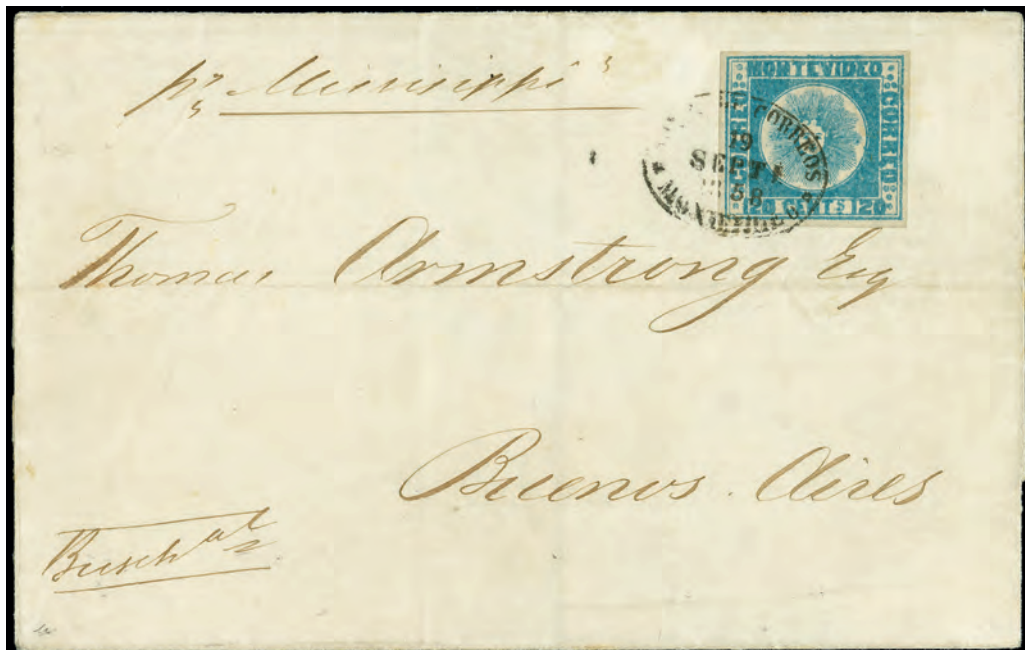 pr "Mississippi"
MONTEVIDEO
CORREO
120 CENTS 120
CORREOS
19
SEPT
58
MONTEVIDEO
Thomas Armstrong Esq
Buenos Aires
Busch